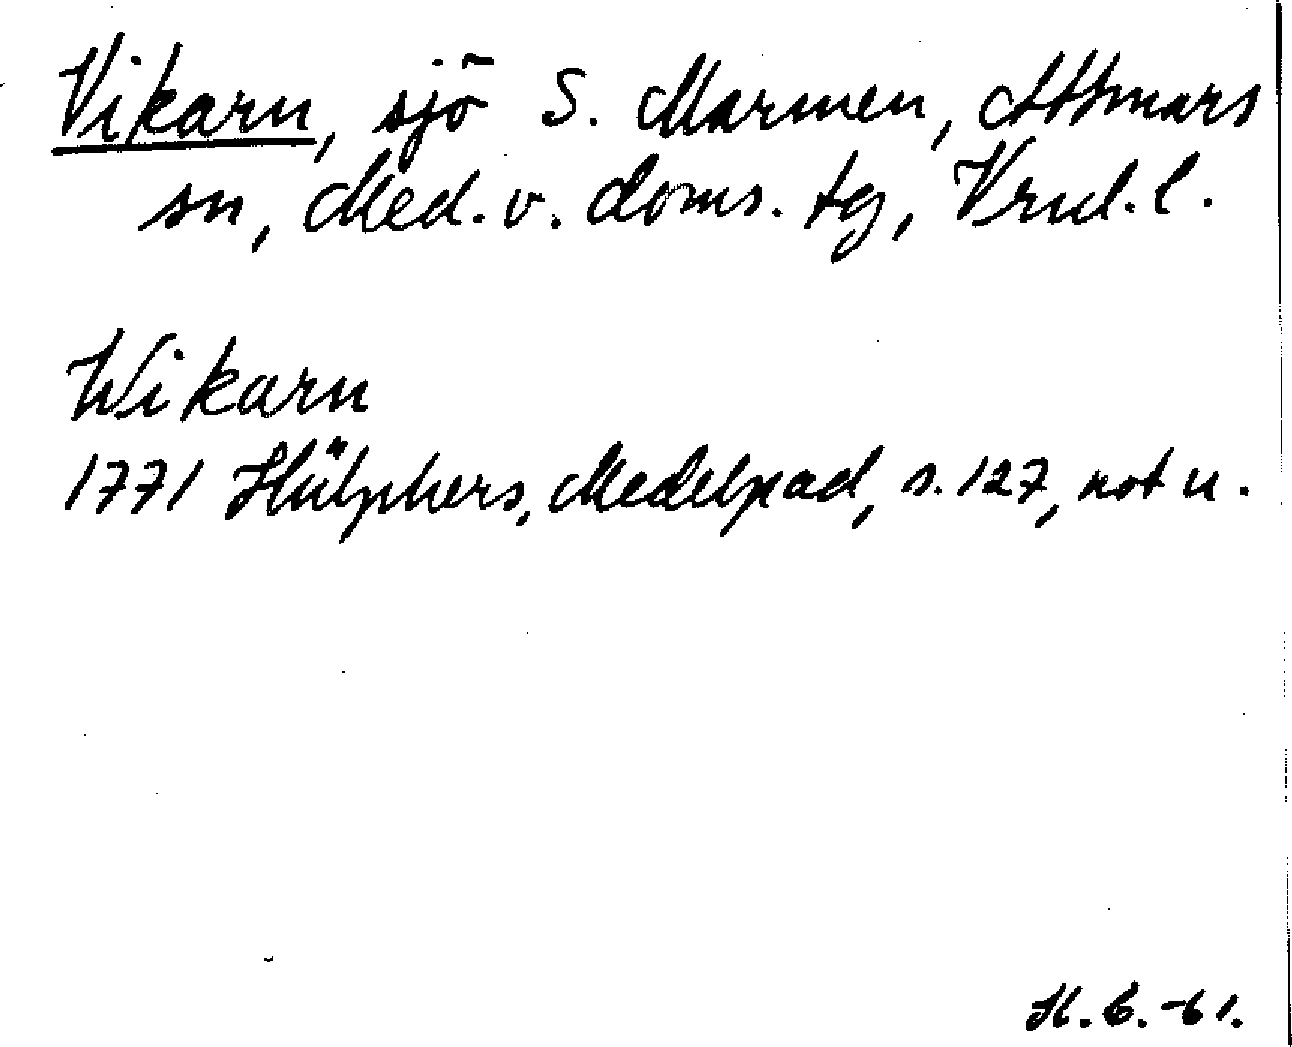 Vikarn, sjö S. Marmen, Attmars
sn, Med. v. doms. tg, Vrnl. l.
Wikarn
1771 Hülphers, Medelpad, s. 127, not u.
H. C. -61.